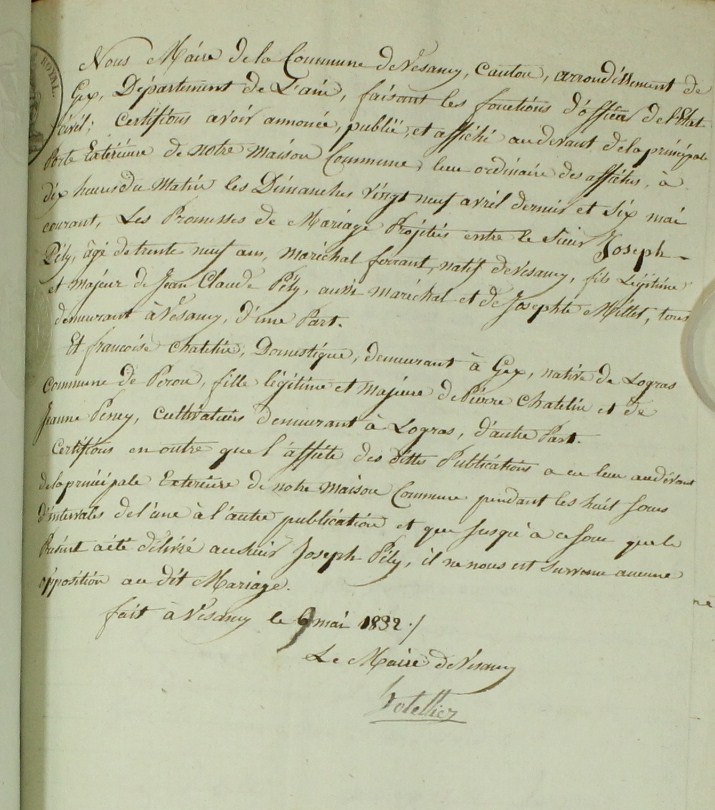 ROYAL.
Nous Maire de la Commune de Vesancy, Canton, arrondissement de
Gex, Département de L'ain, faisant les fonctions d'officier de l'Etat
Civil; Certifions avoir annoncé, publié, et affiché au devant de la principale
Porte Extérieure de notre maison Commune, lieu ordinaire des affiches, à
dix heures du Matin les Dimanches vingt neuf avril dernier et Six mai
courant, Les Promesses de Mariage Projetés entre le Sieur Joseph
Pély, âgé de trente neuf ans, maréchal ferrant, natif de Vesancy, fils Légitime
et majeur de Jean Claude Pély, aussi maréchal et de Josephte Millet, tous
demeurant à Vesancy, d'une Part.
Et françoise chatelin, Domestique, demeurant à Gex, native de Logras
Commune de Peron, fille légitime et majeure de Pierre Chatelin et de
Jeanne Peney, Cultivateurs demeurant à Logras, d'autre Part.
Certifions en outre que l'affiche des dittes Publications a eu lieu au devant
de la principale Extérieure de notre maison Commune pendant les huit Jours
d'intervales de l'une à l'autre publication et que Jusqu'à ce Jour que le
Présent a été délivré au Sieur Joseph Pély, il ne nous est Survenu aucune
opposition au dit Mariage.
fait à Vesancy le 9 mai 1832./
Le Maire de Vésancy